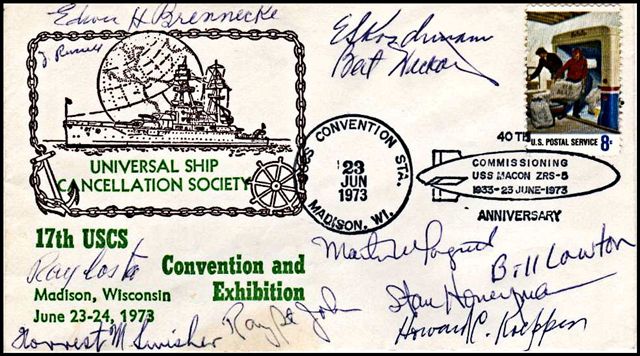 Edwin H Brennecke
J. Russell
UNIVERSAL SHIP
CANCELLATION SOCIETY
U.S. POSTAL SERVICE 8¢
USCS CONVENTION STA.
23
JUN
1973
MADISON, WI.
40TH
COMMISSIONING
USS MACON ZRS-5
1933-23 JUNE-1973
ANNIVERSARY
17th USCS
Convention and
Exhibition
Madison, Wisconsin
June 23-24, 1973
Ray Costa
Bill Lawton
Stan Honeyman
Ray St John
Howard C. Koeppen
Forrest M Swisher